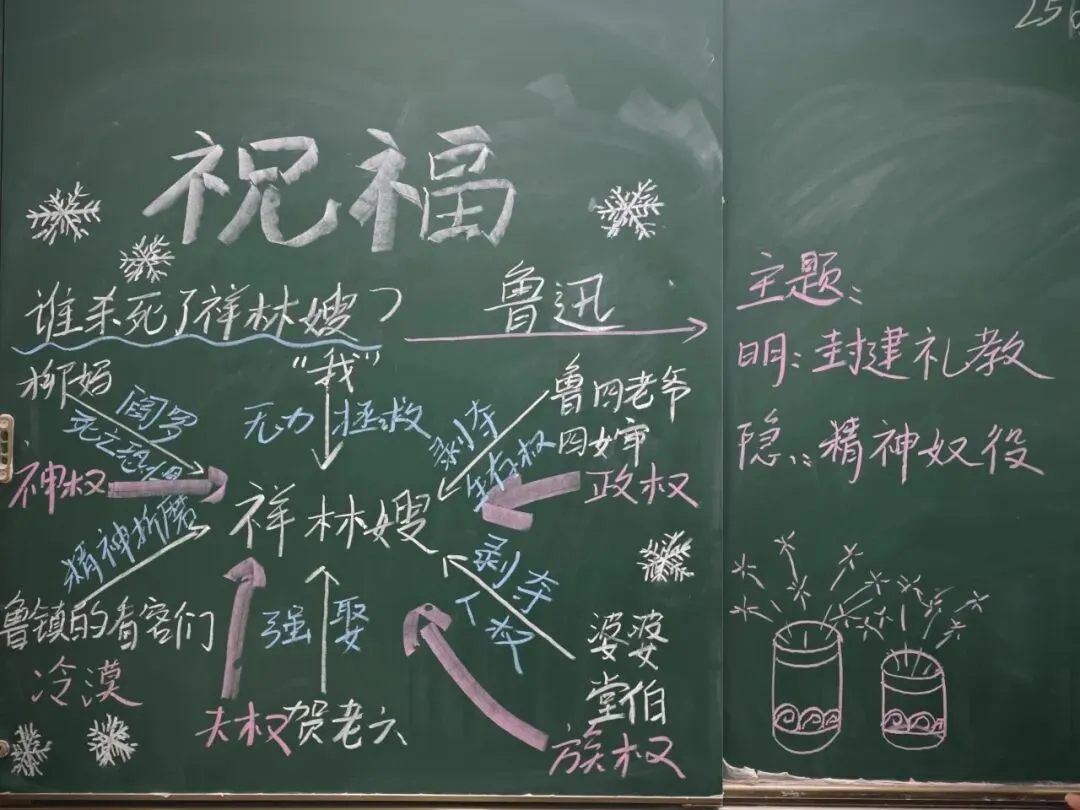 祝福
谁杀死了祥林嫂？
鲁迅
柳妈
阎罗
死之恐惧
神权
"我"
无力拯救
鲁四老爷
四婶
剥夺
生存权
政权
祥林嫂
精神折磨
鲁镇的看客们
冷漠
强娶
夫权
贺老六
剥夺
人权
婆婆
堂伯
族权
主题：
明：封建礼教
隐：精神奴役